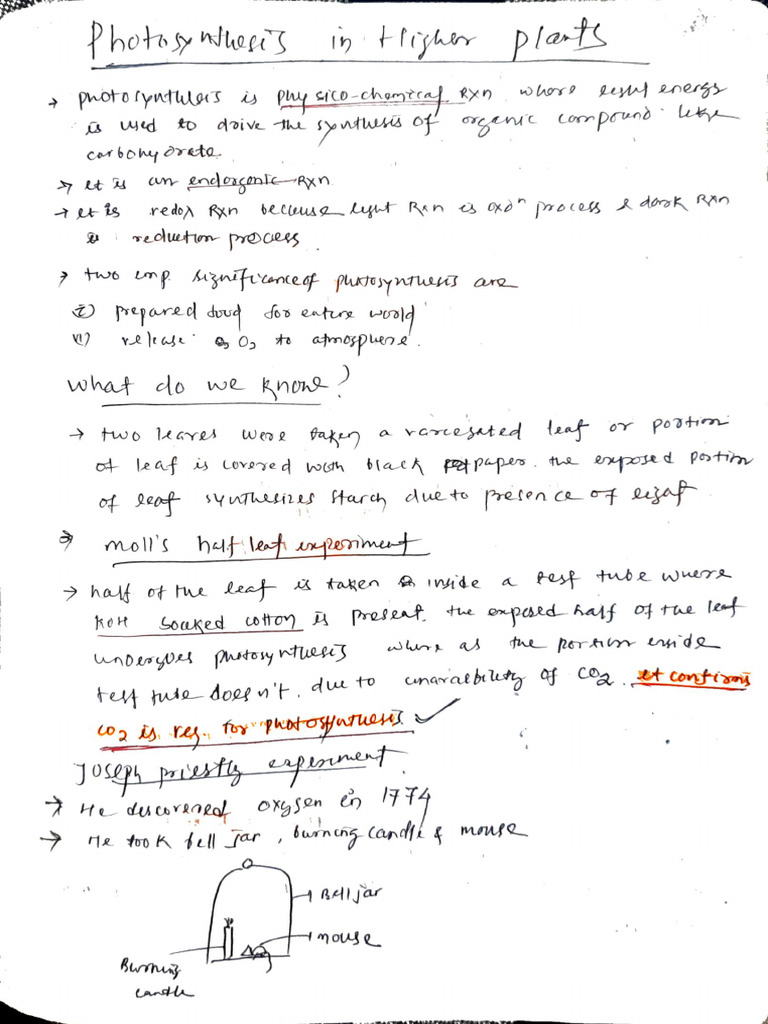 Photosynthesis in Higher plants
→ photosynthesis is physico-chemical Rxn where light energy
is used to drive the synthesis of organic compound like
carbohydrate.
→ It is an endorgonic Rxn
→ It is redox Rxn because light Rxn is oxdⁿ process & dark Rxn
is reduction process.
→ two imp. significance of photosynthesis are
i) prepared food for entire world
ii) release O2 to atmosphere.
What do we know?
→ two leaves were taken a varcegated leaf or portion
of leaf is covered with black paper. the exposed portion
of leaf synthesizes starch due to presence of light
⇒ moll's half leaf experiment
→ half of the leaf is taken inside a test tube where
KOH soaked cotton is present. the exposed half of the leaf
undergoes photosynthesis where as the portion inside
test tube doesn't. due to unavailability of CO2. It confirms
CO2 is req. for photosynthesis. ✓
Joseph priestly experiment
→ He discovered oxygen in 1774
→ He took bell jar, burning candle & mouse
Bell jar
mouse
Burning
candle